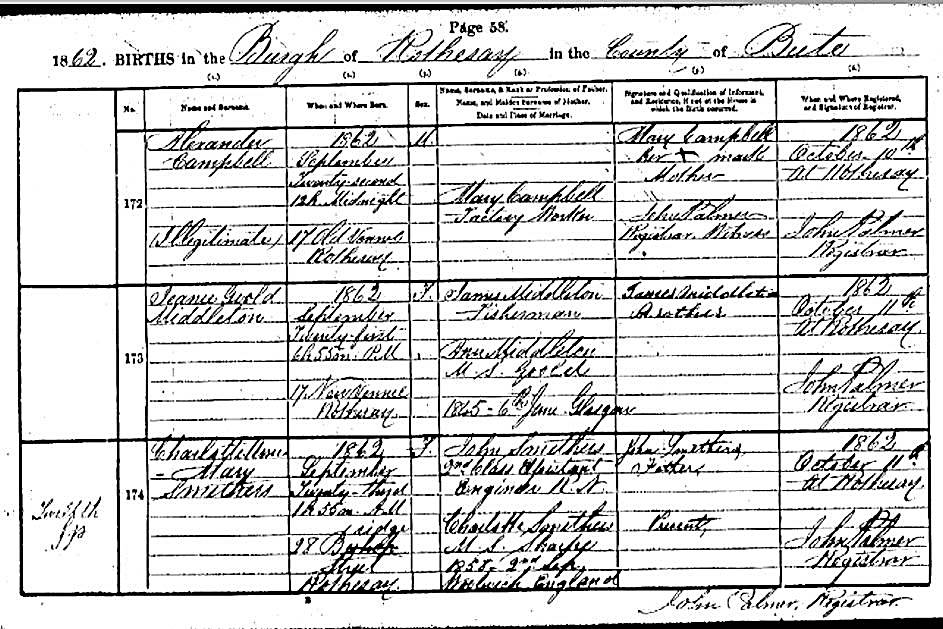 Page 58.
1862. BIRTHS in the Burgh of Rothesay in the County of Bute
(1.) (2.) (3.) (4.) (5.) (6.)
No.
Name and Surname.
When and Where Born.
Sex.
Name, Surname, & Rank or Profession of Father.
Name, and Maiden Surname of Mother.
Date and Place of Marriage.
Signature and Qualification of Informant,
and Residence, if out of the House in
which the Birth occurred.
When and Where Registered,
and Signature of Registrar.
172
Alexander
Campbell
(Illegitimate)
1862
September
Twenty-second
12h Midnight
17 Old Vennel
Rothesay
M.
Mary Campbell
Factory Worker
Mary Campbell
her + mark
Mother
John Palmer
Registrar. Witness
1862
October 10th
At Rothesay
John Palmer
Registrar
173
Jeanie
Middleton
1862
September
Twenty-first
6h 55m P.M
17 New Vennel
Rothesay
F.
James Middleton
Fisherman
Ann Middleton
M. S.
1845 - 6th June Glasgow
James Middleton
1862
October 11th
At Rothesay
John Palmer
Registrar
174
Mary
Smithers
1862
September
Twenty-third
1h 55m A.M
28 Bishop
Street
Rothesay
F.
John Smithers
2nd Class Assistant
Engineer R. N.
Charlotte Smithers
M. S. Sharpe
1858. 2nd Sep.
Woolwich England
John Smithers,
Father
Present,
1862
October 11th
At Rothesay.
John Palmer
Registrar
John Palmer, Registrar.